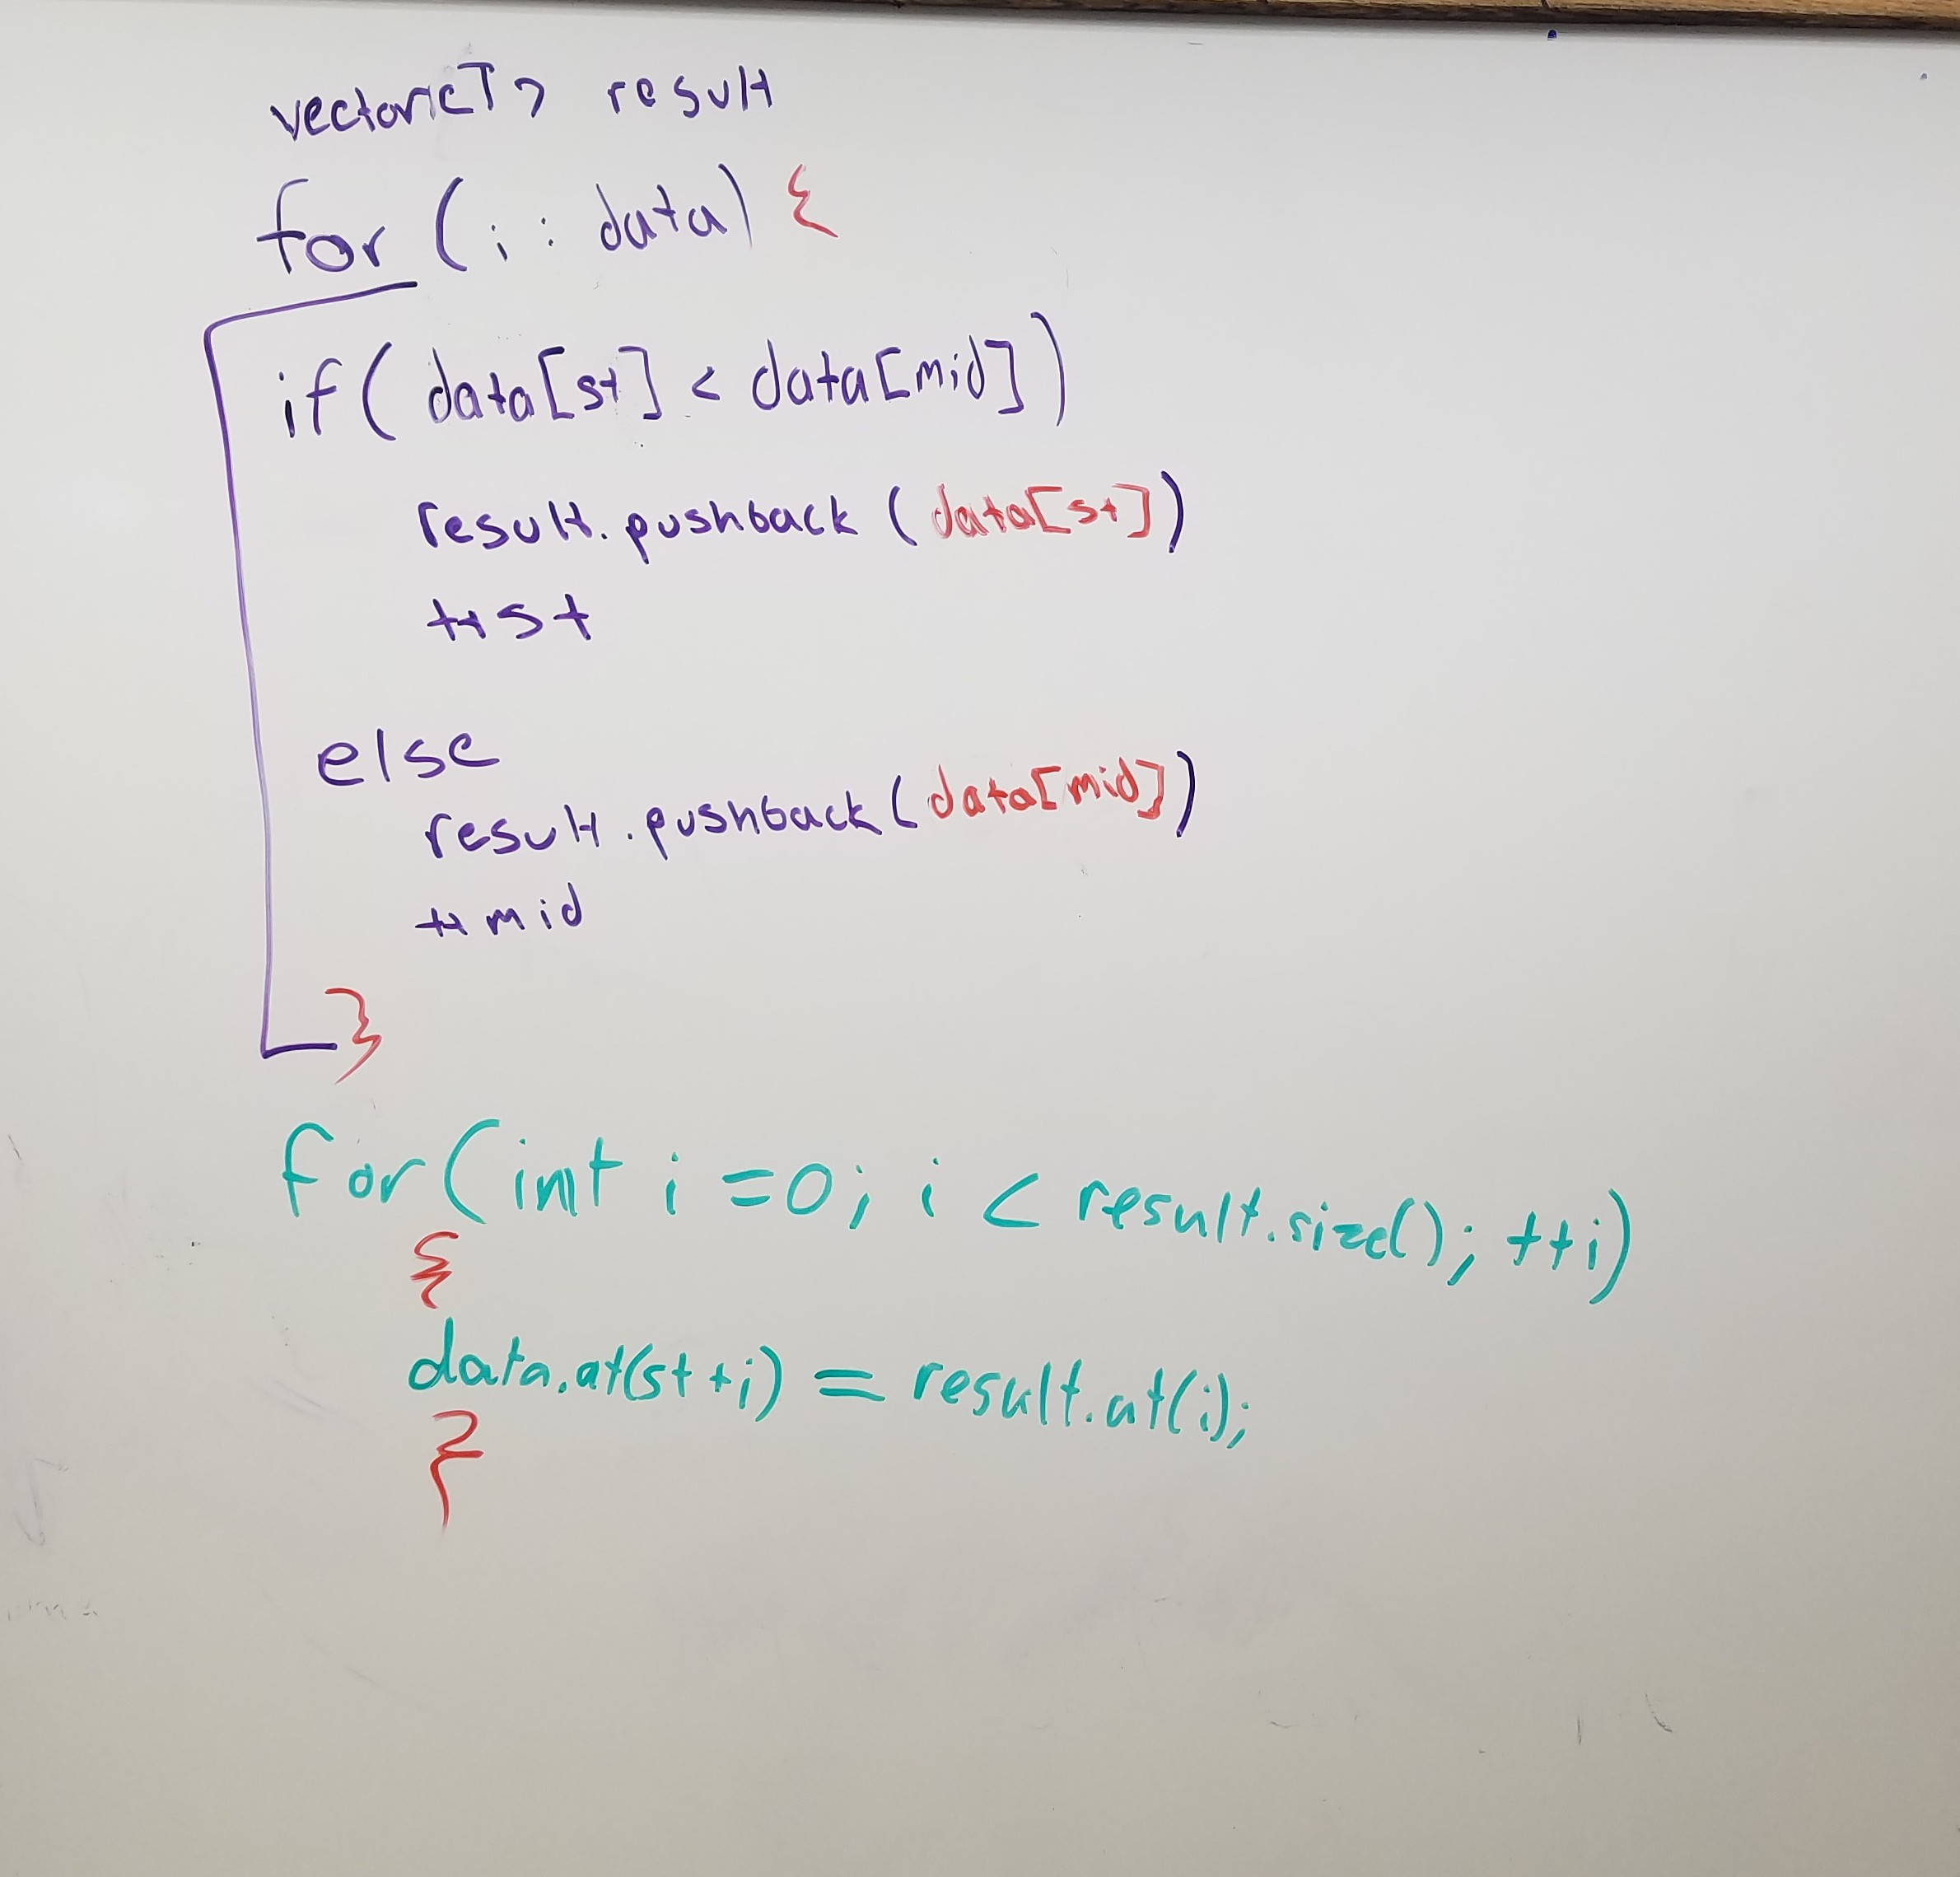 vector<T> result
for (i : data) {
if ( data[st] < data[mid])
result.pushback (data[st])
++st
else
result.pushback(data[mid])
++mid
}
for (int i =0; i < result.size(); ++i)
{
data.at(st+i) = result.at(i);
}